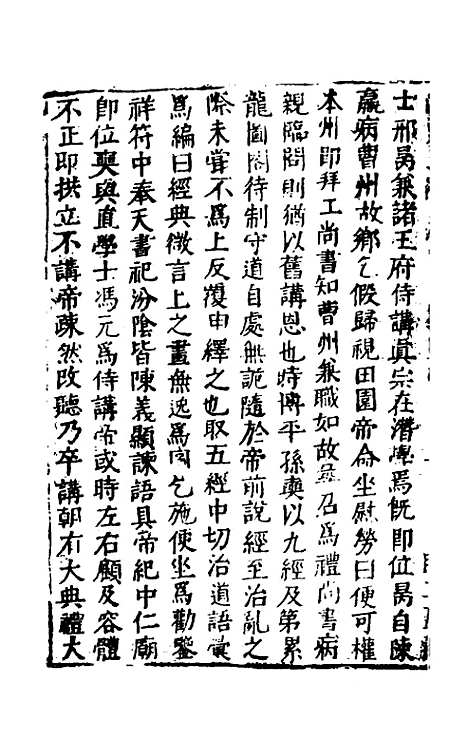 士邢昺兼諸王府侍講眞宗在潛學焉旣即位昺自陳
羸病曹州故鄉乞假歸視田園帝命坐慰勞曰便可權
本州即拜工尚書知曹州兼職如故尋召爲禮尚書病
親臨問則猶以舊講恩也時博平孫奭以九經及第累
龍圖閣待制守道自處無詭隨於帝前說經至治亂之
際未嘗不爲上反覆申繹之也取五經中切治道語彙
爲編曰經典微言上之畫無逸爲圖乞施便坐爲勸鑒
祥符中奉天書祀汾陰皆陳義顯諫語具帝紀中仁廟
卽位奭與直學士馮元爲侍講帝或時左右顧及容體
不正即拱立不講帝疎然改聽乃卒講朝有大典禮大